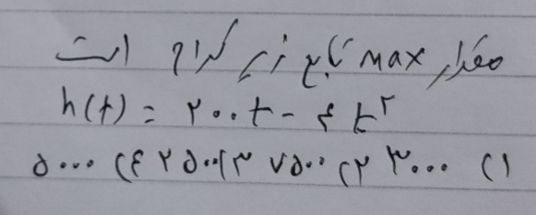 مقدار max تابع زیر کدام است
h(t) = ۲۰۰t - ۴t۲
۱) ۳۰۰۰ ۲) ۷۵۰۰ ۳) ۲۵۰۰ ۴) ۵۰۰۰